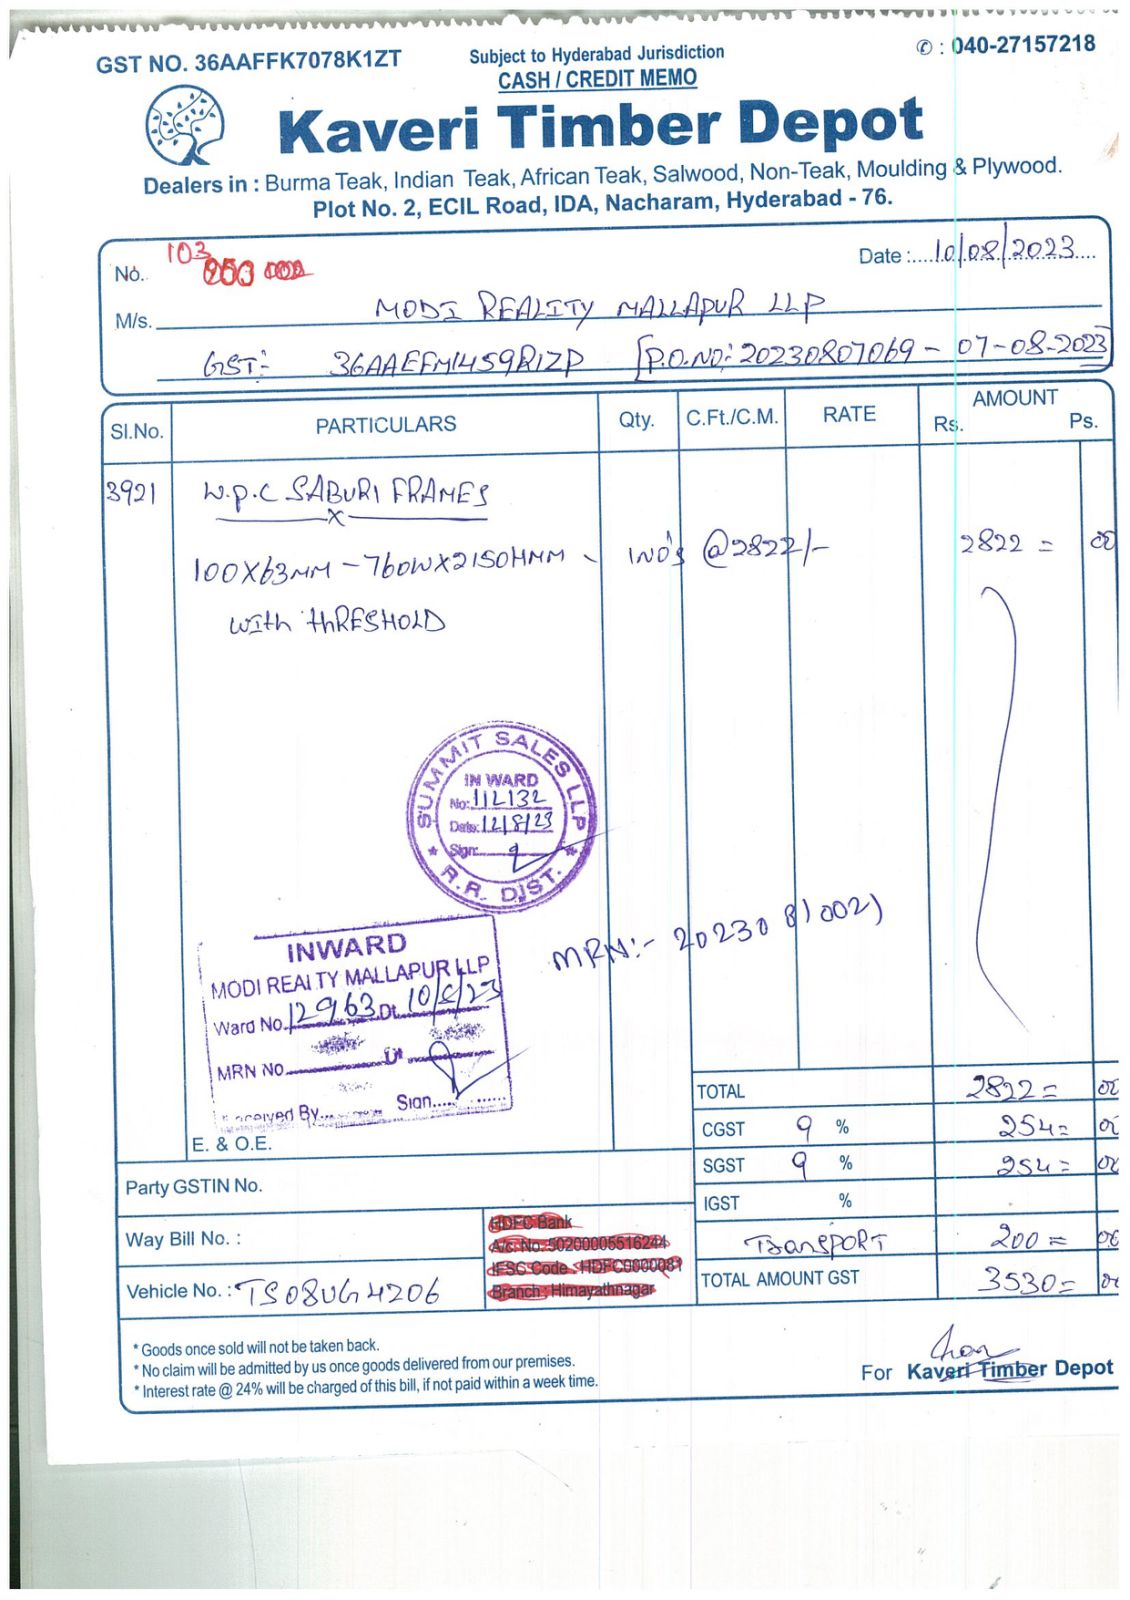 GST NO. 36AAFFK7078K1ZT
Subject to Hyderabad Jurisdiction
✆ : 040-27157218
CASH / CREDIT MEMO
Kaveri Timber Depot
Dealers in : Burma Teak, Indian Teak, African Teak, Salwood, Non-Teak, Moulding & Plywood.
Plot No. 2, ECIL Road, IDA, Nacharam, Hyderabad - 76.
No. 103
Date : 10/08/2023
M/s. MODI REALITY MALLAPUR LLP
GST:- 36AAEFM1459R1ZP [P.O.NO: 20230807069 - 07-08-2023]
Sl.No. PARTICULARS Qty. C.Ft./C.M. RATE AMOUNT
Rs. Ps.
3921 W.P.C SABURI FRAMES
x
100X63MM - 760WX2150HMM - 1NO's @2822/- 2822 = 00
with thRESHOLD
SUMMIT SALES LLP
IN WARD
No: 112132
Date: 12/8/23
Sign:
* R.R. DIST. *
MRN:- 20230811002)
INWARD
MODI REALTY MALLAPUR LLP
Ward No. 12963 Dt. 10/8/23
MRN No. Dt
Received By.... Sign.....
TOTAL 2822 = 00
E. & O.E.
CGST 9 % 254 = 00
SGST 9 % 254 = 00
Party GSTIN No.
IGST %
Way Bill No. :
HDFC Bank
A/c. No: 50200005516244
IFSC Code : HDFC0000081
Branch : Himayathnagar
TranSPORT 200 = 00
Vehicle No. : TS08UG4206
TOTAL AMOUNT GST 3530 = 00
* Goods once sold will not be taken back.
* No claim will be admitted by us once goods delivered from our premises.
* Interest rate @ 24% will be charged of this bill, if not paid within a week time.
For Kaveri Timber Depot